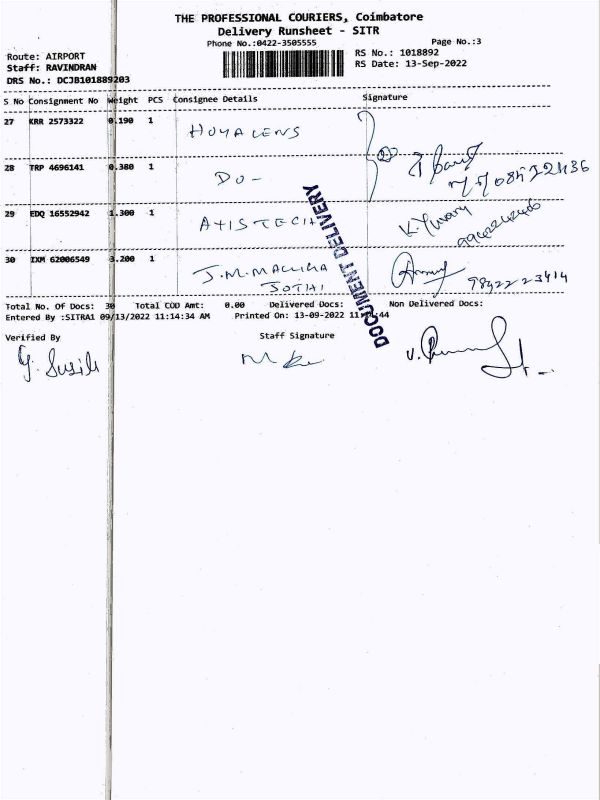 THE PROFESSIONAL COURIERS, Coimbatore
Delivery Runsheet - SITR
Phone No.:0422-3505555 Page No.:3
Route: AIRPORT RS No.: 1018892
Staff: RAVINDRAN RS Date: 13-Sep-2022
DRS No.: DCJB101889203
S No Consignment No Weight PCS Consignee Details Signature
27 KRR 2573322 0.190 1 HOYA LENS
28 TRP 4696141 0.380 1 DO -
29 EDQ 16552942 1.300 1 AXIS TECH
30 IXM 62006549 3.200 1 J.M. MALLIKA
JOTHI 98422 23414
DOCUMENT DELIVERY
Total No. Of Docs: 30 Total COD Amt: 0.00 Delivered Docs: Non Delivered Docs:
Entered By :SITRA1 09/13/2022 11:14:34 AM Printed On: 13-09-2022 11:14:44
Verified By Staff Signature